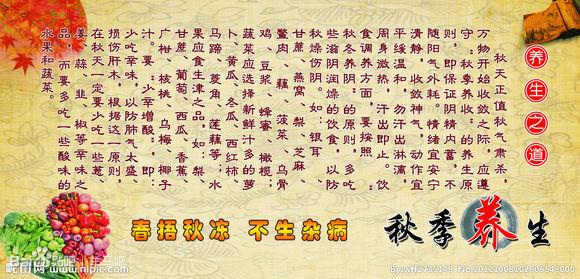 养生之道
秋天正值秋气肃杀，
万物开始收敛之际，应遵
守：秋季养收：的养生原
则，即保证阴精内蓄，不
随阳气外耗。情绪宜安宁
清静，收敛神气，动作宜
平缓温和，勿汗出淋漓，
周身微热，汗出即止。饮
食调养方面，要按照：
秋冬养阴：的原则，多吃
些滋阴润燥的饮食，以防
秋燥伤阴。如：银耳、
甘蔗、燕窝、梨、芝麻、
鳖肉、藕、菠菜、乌骨
鸡、豆浆、蜂蜜、橄榄；
蔬菜应选择新鲜汁多的萝
卜、黄瓜、冬瓜、西红柿
马蹄、菱角、莲藕等；水
果应食生津之品，如：梨
甘蔗、葡萄、西瓜、香蕉
广柑、核桃、乌梅、椰子
汁。要：少辛增酸：，即
少吃辛味，以防肺气太盛
损伤肝木，根据这一原则，
在秋天一定要少吃一些葱、
姜、蒜、韭、椒等辛味之
品，而要多吃一些酸味的
水果和蔬菜。
春捂秋冻 不生杂病
秋季养生
昵图网 www.nipic.com
By:wff2735149 No.20121008102606545000